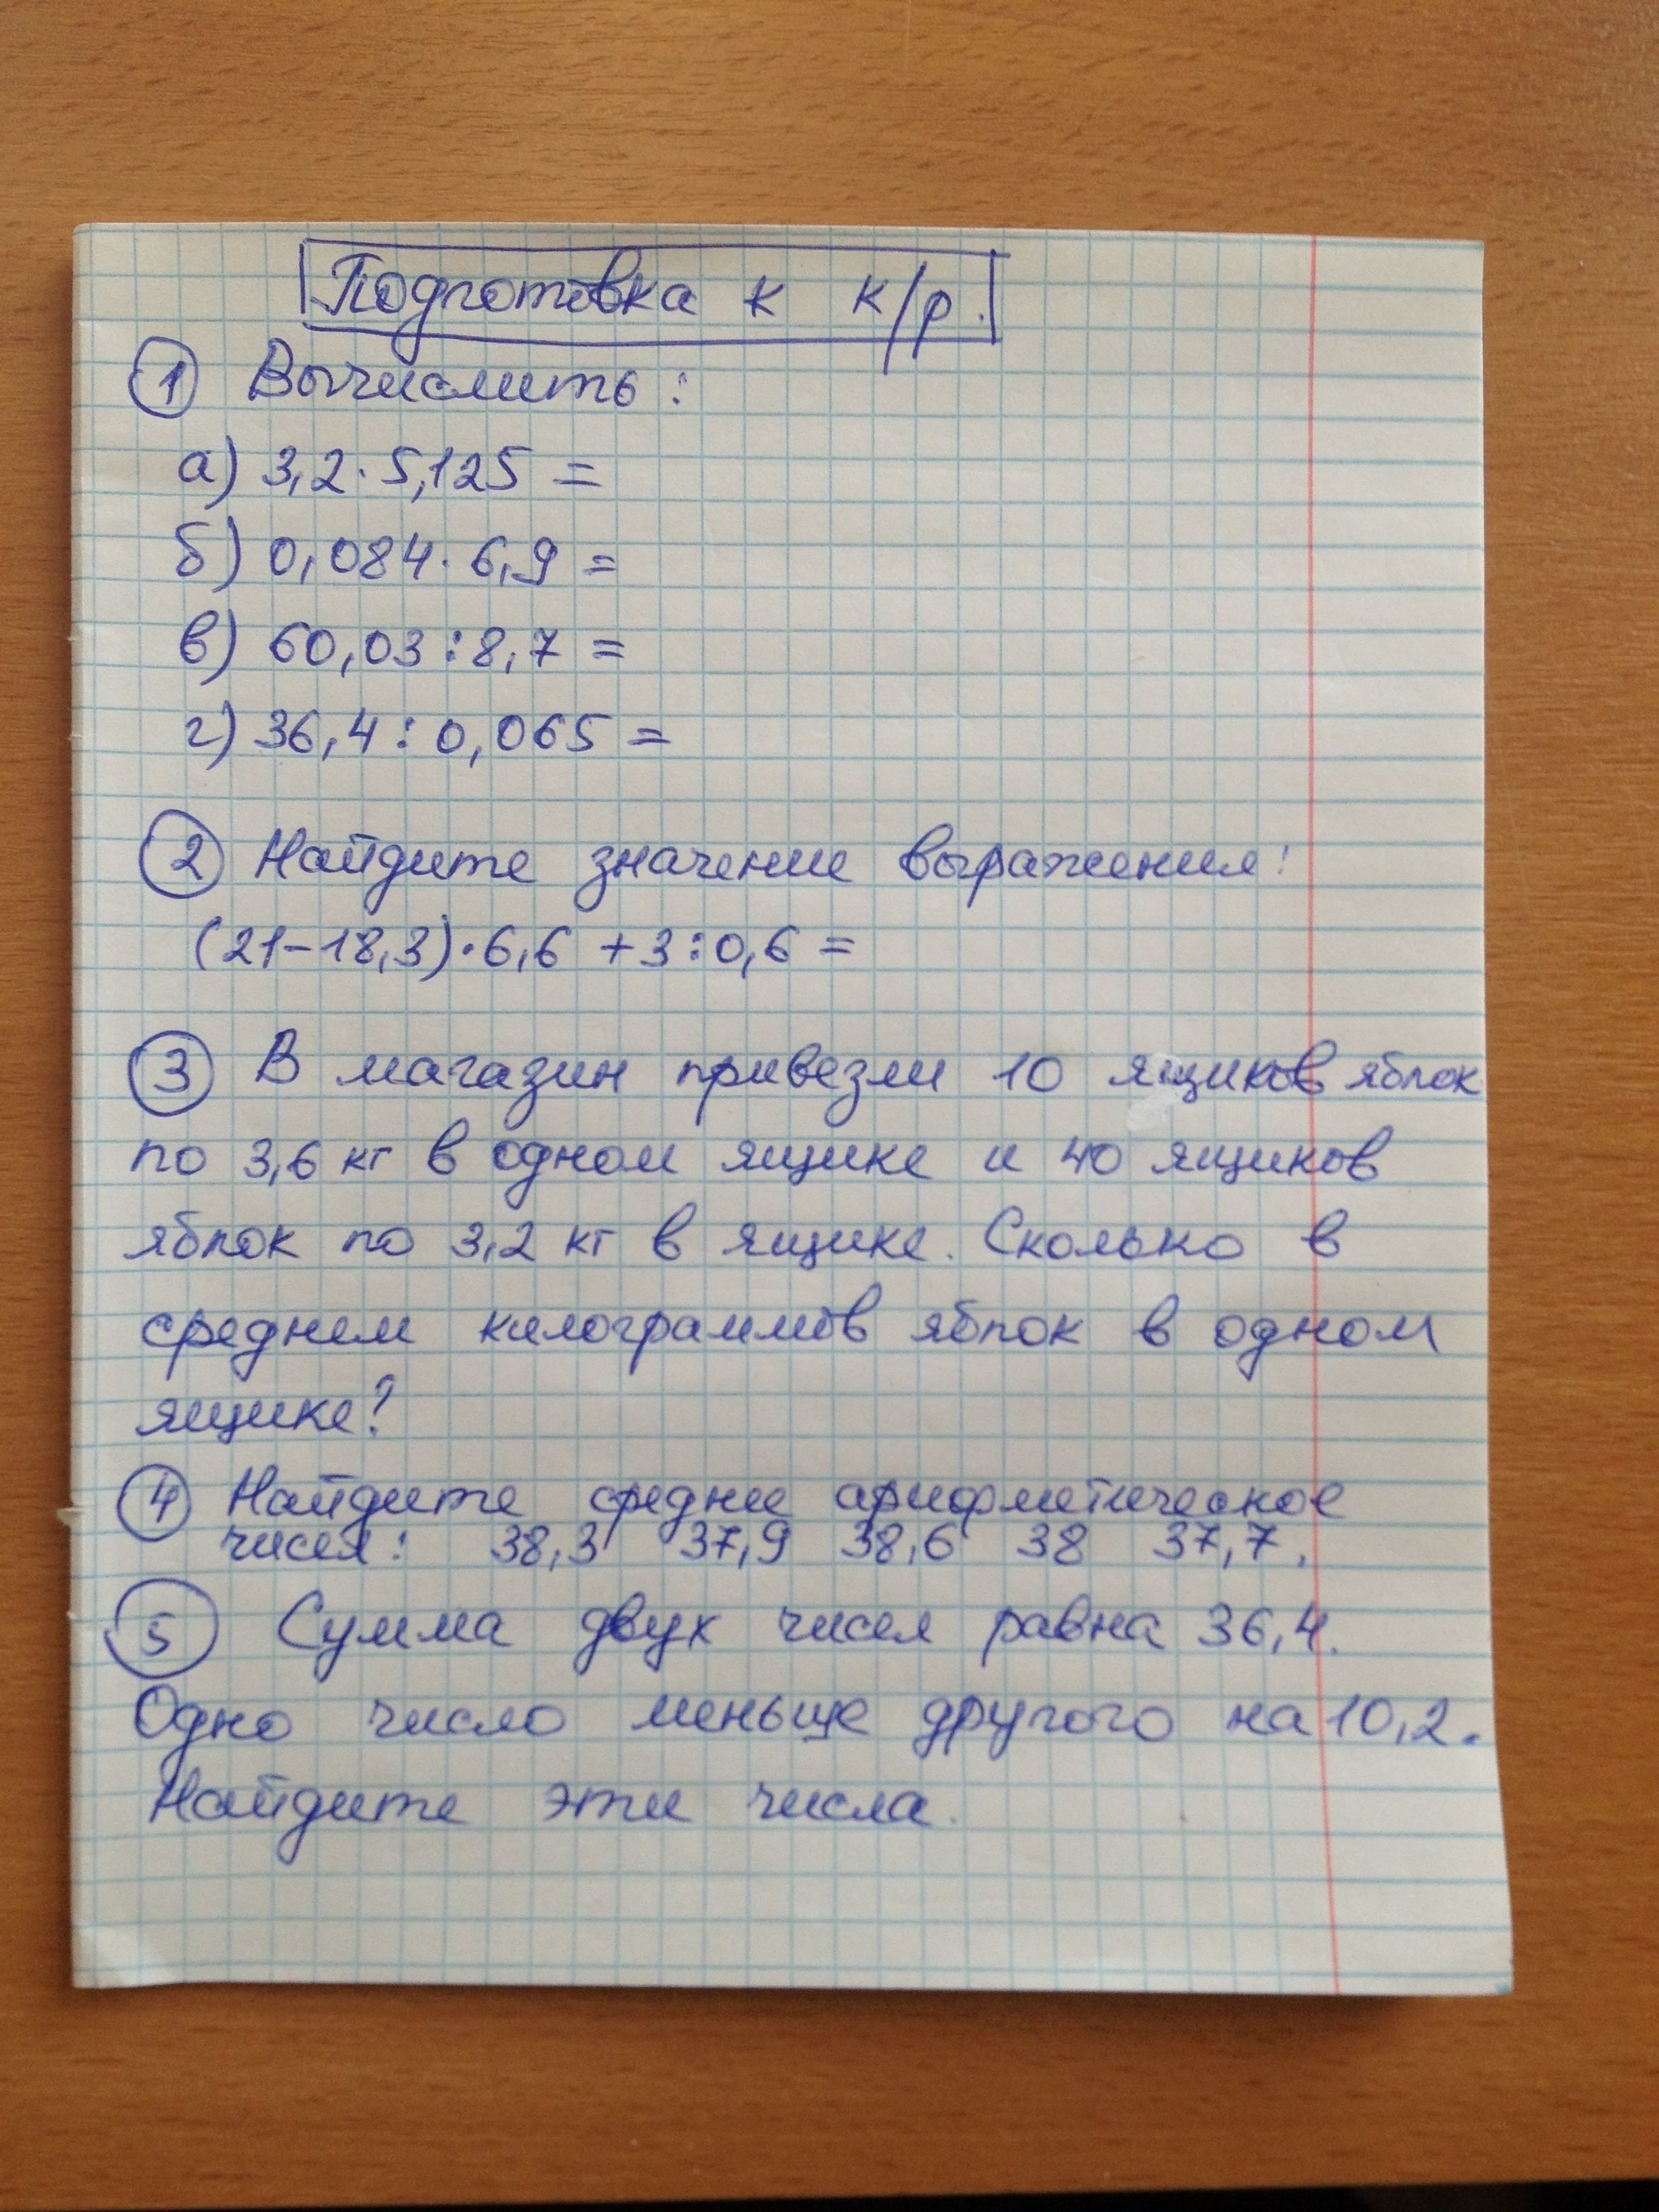 Подготовка к к/р.
1 Вычислить:
а) 3,2·5,125 =
б) 0,084·6,9 =
в) 60,03:8,7 =
г) 36,4:0,065 =
2 Найдите значение выражения:
(21-18,3)·6,6 +3:0,6 =
3 В магазин привезли 10 ящиков яблок
по 3,6 кг в одном ящике и 40 ящиков
яблок по 3,2 кг в ящике. Сколько в
среднем килограммов яблок в одном
ящике?
4 Найдите средне арифметическое
чисел: 38,3 37,9 38,6 38 37,7.
5 Сумма двух чисел равна 36,4.
Одно число меньще другого на 10,2.
Найдите эти числа.